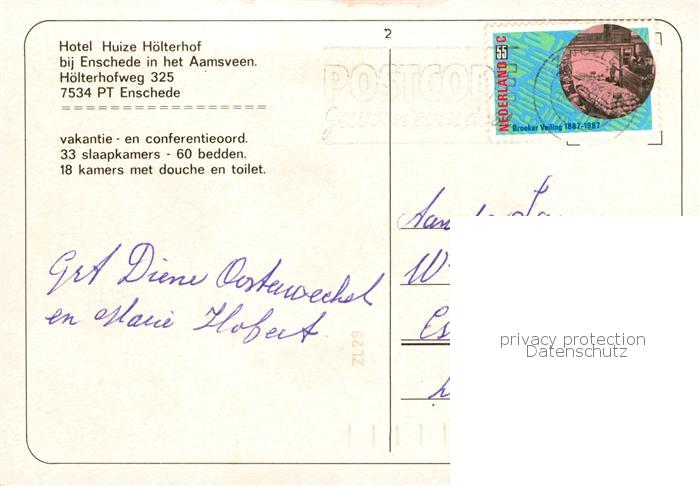 2
Hotel Huize Hölterhof
bij Enschede in het Aamsveen.
Hölterhofweg 325
7534 PT Enschede
======================
vakantie - en conferentieoord.
33 slaapkamers - 60 bedden.
18 kamers met douche en toilet.
POSTCODE
NEDERLAND 55 C
Broeker Veiling 1887-1987
Grt Diene Oosterwechel
en Marie Hobert
Aan de
W
Es
ZL29
privacy protection
Datenschutz